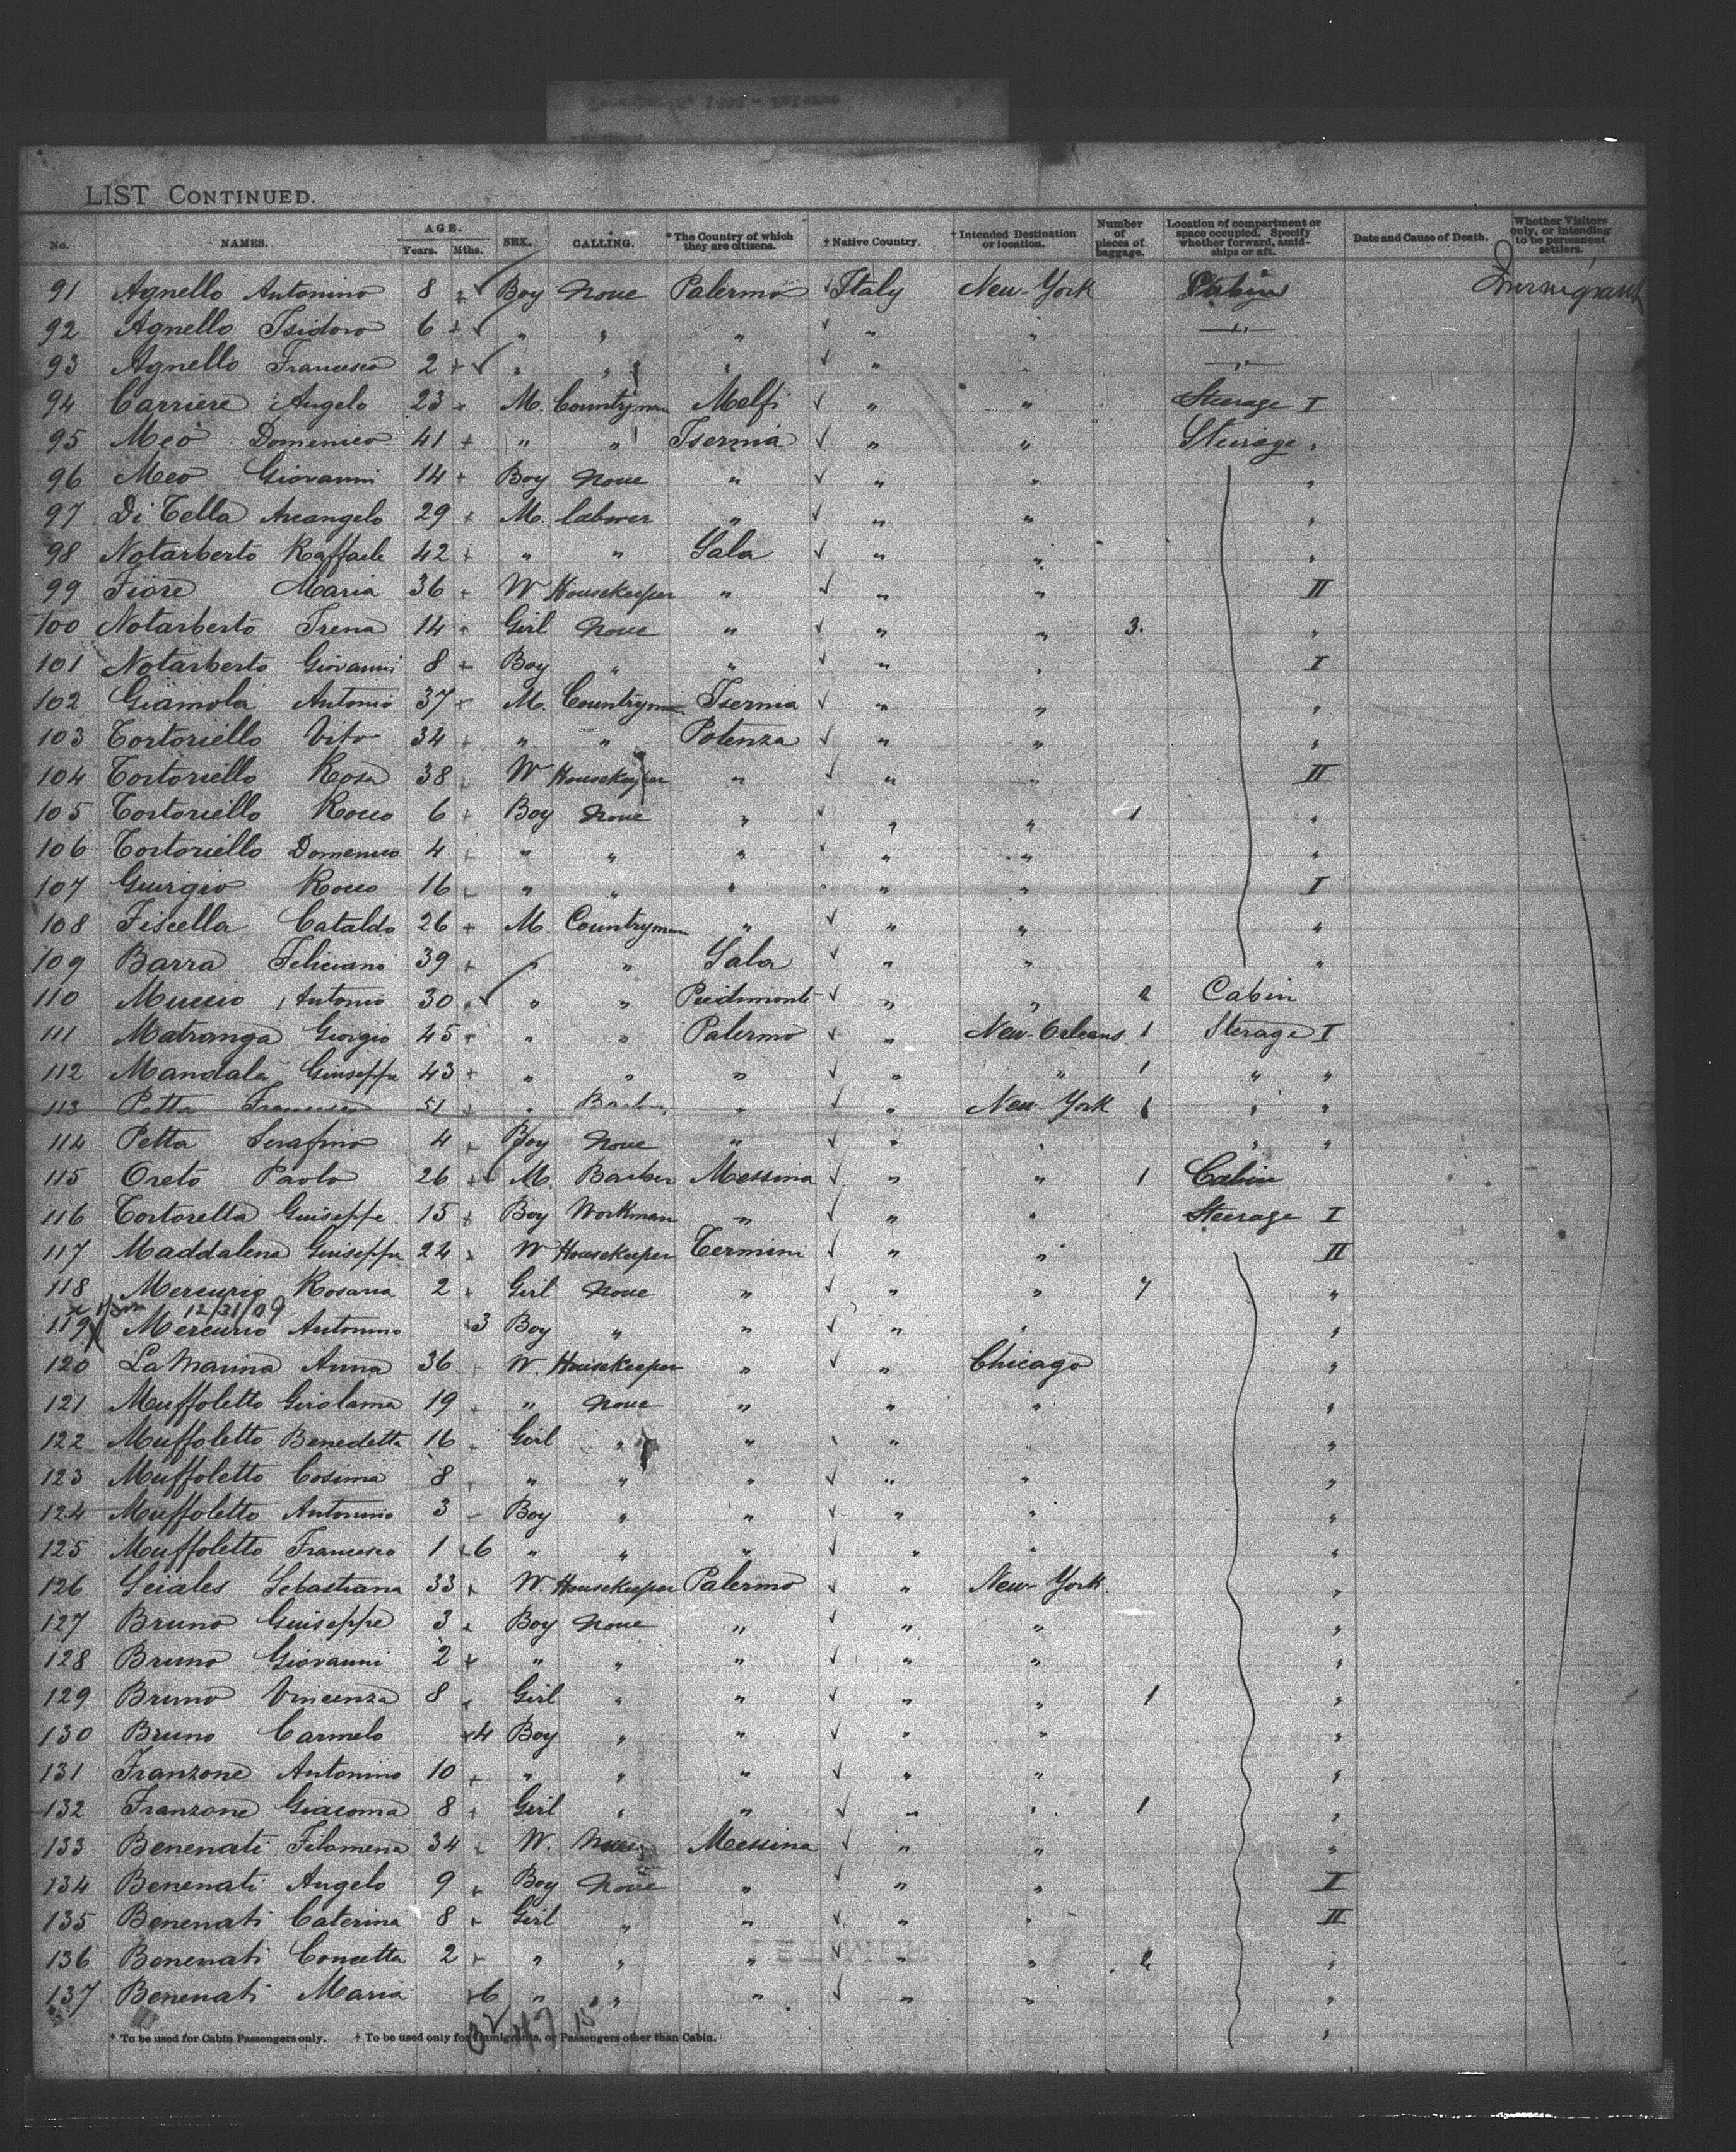 LIST CONTINUED.
No. NAMES. AGE. Years. Mths. SEX. CALLING. * The Country of which they are citizens. † Native Country. † Intended Destination or location. Number of pieces of baggage. Location of compartment or space occupied. Specify whether forward, amidships or aft. Date and Cause of Death. Whether Visitors only, or intending to be permanent settlers.
91 Agnello Antonino 8 Boy None Palermo ✓ Italy New-York Cabin Immigrant
92 Agnello Isidoro 6 " " " ✓ " "
93 Agnello Francesco 2 " " " ✓ "
94 Carriere Angelo 23 M. Countryman Melfi ✓ " " Steerage I
95 Meo Domenico 41 " " Isernia ✓ " " Steerage "
96 Meo Giovanni 14 Boy None " ✓ " " "
97 Di Tella Arcangelo 29 M. laborer " ✓ " " "
98 Notarberto Raffaele 42 " " Sala ✓ " " "
99 Fiore Maria 36 W Housekeeper " ✓ " " II
100 Notarberto Irena 14 Girl None " ✓ " " 3. "
101 Notarberto Giovanni 8 Boy " " ✓ " " I
102 Giamola Antonio 37 M. Countryman Isernia ✓ " " "
103 Tortoriello Vito 34 " " Potenza ✓ " " "
104 Tortoriello Rosa 38 W Housekeeper " ✓ " " II
105 Tortoriello Rocco 6 Boy None " ✓ " " 1 "
106 Tortoriello Domenico 4 " " " ✓ " " "
107 Giurgio Rocco 16 " " " " " I
108 Fiscella Cataldo 26 M. Countryman " ✓ " " "
109 Barra Feliciano 39 " " Sala ✓ " " "
110 Muccio Antonio 30 ✓ " " Piedimonte ✓ " " 2 Cabin
111 Matranga Giorgio 45 " " Palermo ✓ " New-Orleans 1 Sterage I
112 Mandala Giuseppe 43 " " " ✓ " " 1 " "
113 Petta Francesco 51 " Barber " ✓ " New-York 1 " "
114 Petta Serafino 4 Boy None " ✓ " " " "
115 Oreto Paolo 26 ✓ M. Barber Messina ✓ " " 1 Cabin
116 Tortorella Giuseppe 15 Boy Workman " ✓ " " Steerage I
117 Maddalena Giuseppa 22 W Housekeeper Termini ✓ " " II
118 Mercurio Rosaria 2 Girl None " ✓ " " 7 "
12/31/09
119 X Mercurio Antonino 3 Boy " " ✓ " " "
120 La Marina Anna 36 W. Housekeeper " ✓ " Chicago "
121 Muffoletto Girolama 19 " None " " " "
122 Muffoletto Benedetta 16 Girl " " " "
123 Muffoletto Cosima 8 " " " ✓ " " "
124 Muffoletto Antonino 3 Boy " " ✓ " " "
125 Muffoletto Francesco 1 6 " " " ✓ " " "
126 Sciales Sebastiana 33 W. Housekeeper Palermo ✓ " New-York "
127 Bruno Giuseppe 3 Boy None " ✓ " " "
128 Bruno Giovanni 2 " " " ✓ " " "
129 Bruno Vincenza 8 Girl " " ✓ " " 1 "
130 Bruno Carmelo 4 Boy " " ✓ " " "
131 Franzone Antonino 10 " " " ✓ " " "
132 Franzone Giacoma 8 Girl " " ✓ " " 1 "
133 Benenati Filomena 34 W. None Messina ✓ " " "
134 Benenati Angelo 9 Boy None " ✓ " " I
135 Benenati Caterina 8 Girl " " ✓ " " II
136 Benenati Concetta 2 " " " ✓ " " 2 "
137 Benenati Maria 6 " " " ✓ " " "
* To be used for Cabin Passengers only. † To be used only for Immigrants, or Passengers other than Cabin.